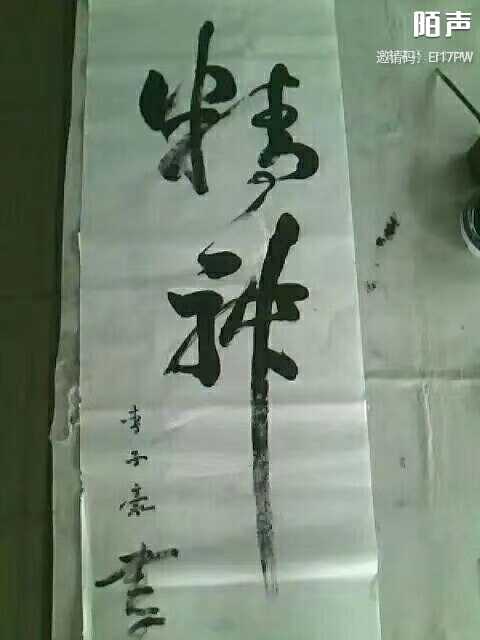 陌声
邀请码：EI17PW
精神
李子豪
书